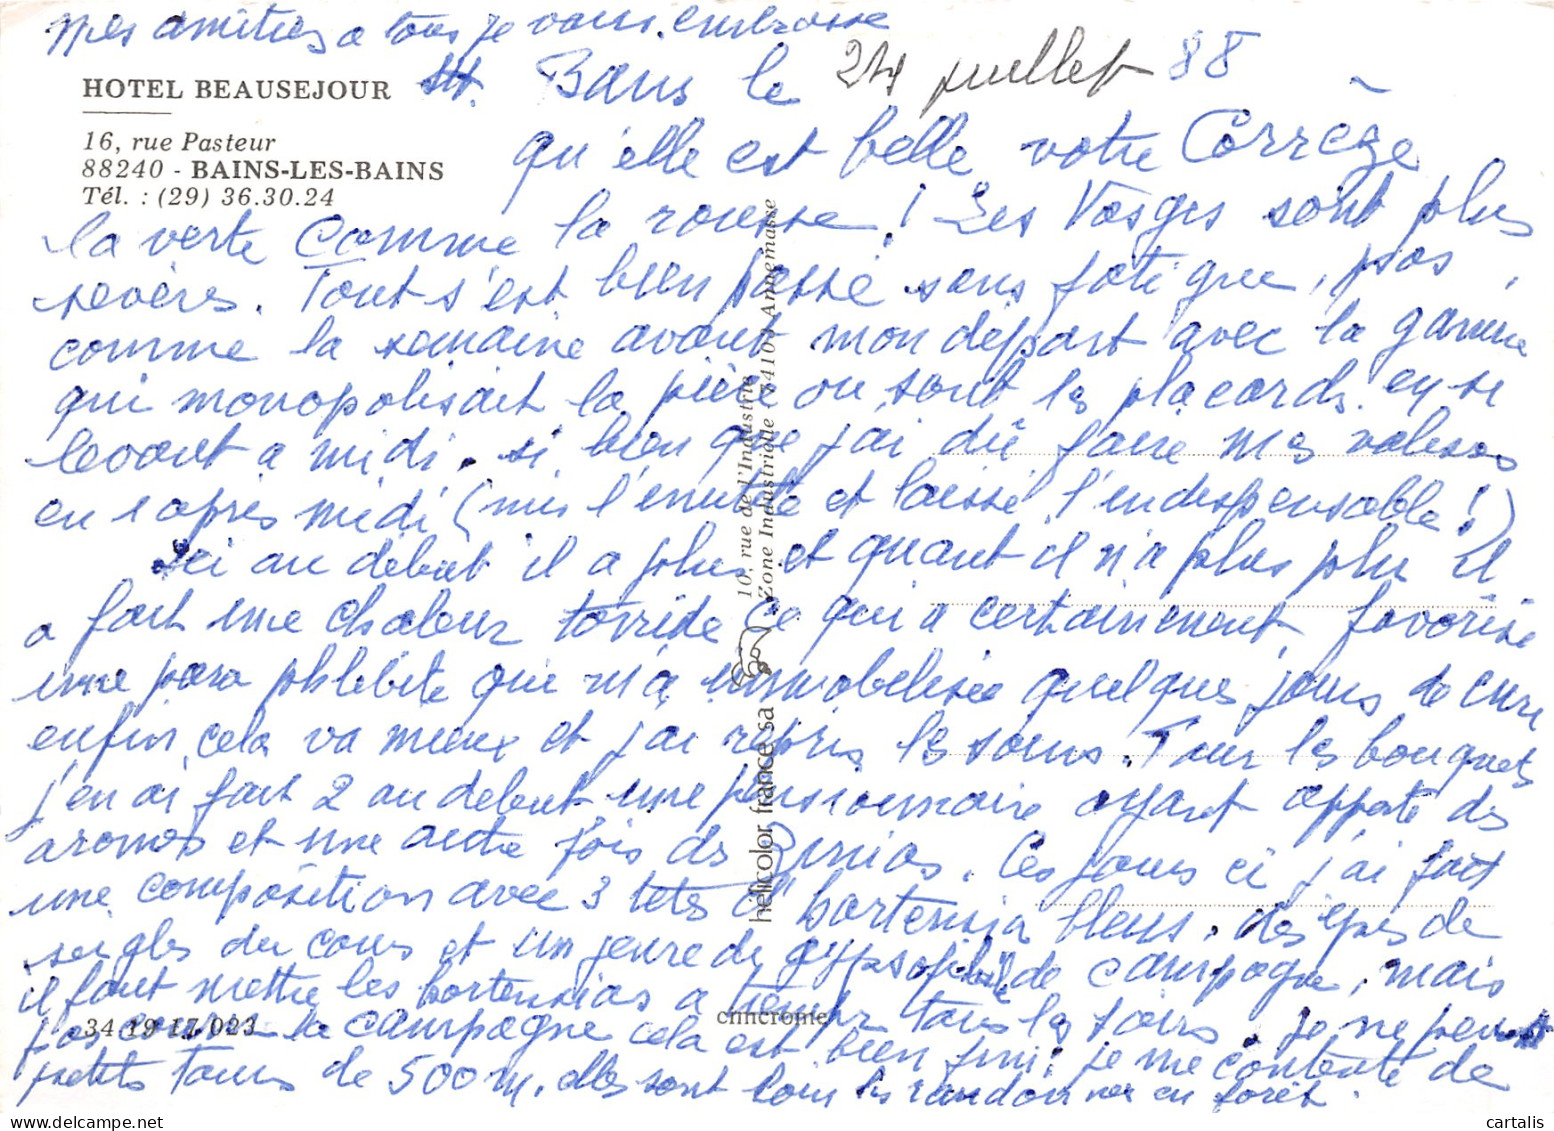 mes amitiés a tous je vous embrasse
HOTEL BEAUSEJOUR
16, rue Pasteur
88240 - BAINS-LES-BAINS
Tél. : (29) 36.30.24
Bains le 24 juillet 88
qu'elle est belle votre Corrèze
la verte comme la rousse ! Les Vosges sont plus
sevères. Tout s'est bien passé sans fatigue, pas
comme la semaine avant mon départ avec la gamine
qui monopolisait la pièce ou sont les placards en se
levant a midi. si bien que j'ai dû faire mes valises
en 1 après midi (mis l'inutile et laissé l'indispensable !)
Ici au début il a plu et quant il n'a plus plu il
a fait une chaleur torride ce qui a certainement favorisé
une para phlébite qui m'a immobilisée quelques jours de cure
enfin cela va mieux et j'ai repris les soins. Pour les bouquets
j'en ai fait 2 au debut une pensionnaire ayant apporté des
aromes et une autre fois des Zinias. Ces jours ci j'ai fait
une composition avec 3 têtes d'hortensia bleus. des épis de
seigles du cours et un genre de gypsophile de campagne, mais
il faut mettre les hortensias a tremper tous les jours. je ne peux
pas la campagne cela est bien fini, je me contente de
petits tours de 500 m. elles sont loin les randonnées en forêt.
10, rue de l'Industrie
Zone Industrielle - 74103 Annemasse
hélicolor france sa
34 19 17 023
cimcrome